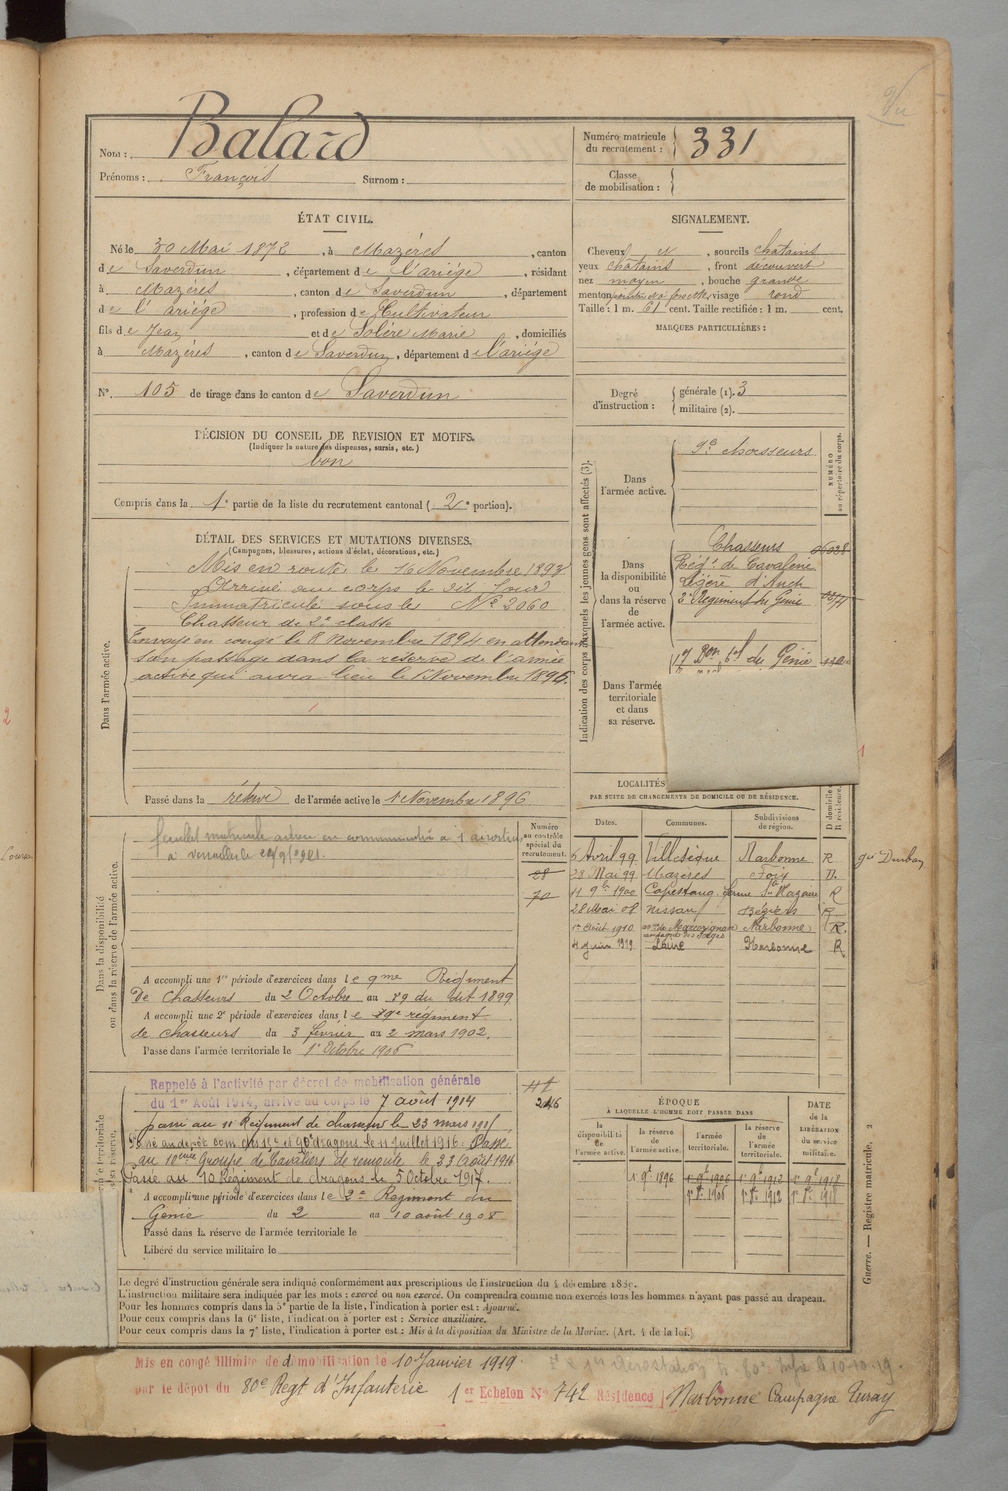 Vu
Nom : Balard
Prénoms : François Surnom :
Numéro matricule du recrutement : 331
Classe de mobilisation :
ÉTAT CIVIL.
Né le 30 Mai 1872, à Mazères, canton
de Saverdun, département de l'ariège, résidant
à Mazères, canton de Saverdun, département
de l'ariège, profession de Cultivateur
fils de Jean et de Solère Marie, domiciliés
à Mazères, canton de Saverdun, département de l'ariège
N° 105 de tirage dans le canton de Saverdun
SIGNALEMENT.
Cheveux et, sourcils chatains
yeux chatains, front découvert
nez moyen, bouche grande
menton, visage rond
Taille : 1 m. 61 cent. Taille rectifiée : 1 m. cent.
MARQUES PARTICULIÈRES :
Degré d'instruction : générale (1). 3
militaire (2).
DÉCISION DU CONSEIL DE REVISION ET MOTIFS.
(Indiquer la nature des dispenses, sursis, etc.)
bon
Compris dans la 1e partie de la liste du recrutement cantonal (2e portion).
DÉTAIL DES SERVICES ET MUTATIONS DIVERSES.
(Campagnes, blessures, actions d'éclat, décorations, etc.)
Dans l'armée active.
Mis en route le 16 Novembre 1893
Arrivé au corps le dit Jour
Immatriculé sous le N° 2060
Chasseur de 2e classe
Envoyé en congé le 8 Novembre 1894 en attendant
son passage dans la réserve de l'armée
active qui aura lieu le 1 Novembre 1896.
Passé dans la réserve de l'armée active le 1 Novembre 1896
Indication des corps auxquels les jeunes gens sont affectés (3).
NUMÉRO au répertoire du corps.
Dans l'armée active.
9e Chasseurs
Dans la disponibilité ou dans la réserve de l'armée active.
Chasseurs
Régt de Cavalerie
Légère d'Auch
2e Régiment du Génie
17 Bon tal du Génie
Dans l'armée territoriale et dans sa réserve.
LOCALITÉS
PAR SUITE DE CHANGEMENTS DE DOMICILE OU DE RÉSIDENCE.
Dates. Communes. Subdivisions de région. D domicile R résidence.
6 Avril 99 Villesèque Narbonne R
23 Mai 99 Mazères Foix D.
11 9bre 1900 Capestang R
28 Mai 08 Nissan Béziers R
1er Août 1910 Narbonne R.
4 juin 1912 Narbonne R
Dans la disponibilité ou dans la réserve de l'armée active.
Numéro au contrôle spécial du recrutement.
28
70
A accompli une 1re période d'exercices dans le 9me Régiment
de chasseurs du 2 Octobre au 29 du dit 1899
A accompli une 2e période d'exercices dans le 19e régiment
de chasseurs du 3 février au 2 mars 1902.
Passé dans l'armée territoriale le 1er Octobre 1906
Rappelé à l'activité par décret de mobilisation générale
du 1er Août 1914, arrivé au corps le 7 août 1914
passé au 11 Régiment de chasseurs le 23 mars 1915
au 10eme Groupe de Cavaliers de remonte le 23 Août 1916
Passé au 10 Régiment de dragons le 5 Octobre 1917.
A accompli une période d'exercices dans le 2e Régiment du
Génie du 2 au 10 août 1908
Passé dans la réserve de l'armée territoriale le
Libéré du service militaire le
246
ÉPOQUE
À LAQUELLE L'HOMME DOIT PASSER DANS
la disponibilité de l'armée active. la réserve de l'armée active. l'armée territoriale. la réserve de l'armée territoriale. DATE de la LIBÉRATION du service militaire.
Guerre. — Registre matricule. 2
Le degré d'instruction générale sera indiqué conformément aux prescriptions de l'instruction du 4 décembre 1889.
L'instruction militaire sera indiquée par les mots : exercé ou non exercé. On comprendra comme non exercés tous les hommes n'ayant pas passé au drapeau.
Pour les hommes compris dans la 5e partie de la liste, l'indication à porter est : Ajourné.
Pour ceux compris dans la 6e liste, l'indication à porter est : Service auxiliaire.
Pour ceux compris dans la 7e liste, l'indication à porter est : Mis à la disposition du Ministre de la Marine. (Art. 4 de la loi.)
Mis en congé illimité de démobilisation le 10 Janvier 1919.
par le dépôt du 80e Regt d'Infanterie 1er Echelon N° 742 Résidence Narbonne Campagne